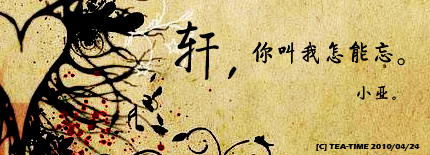 轩，你叫我怎能忘。
小亚。
[C] TEA-TIME 2010/04/24